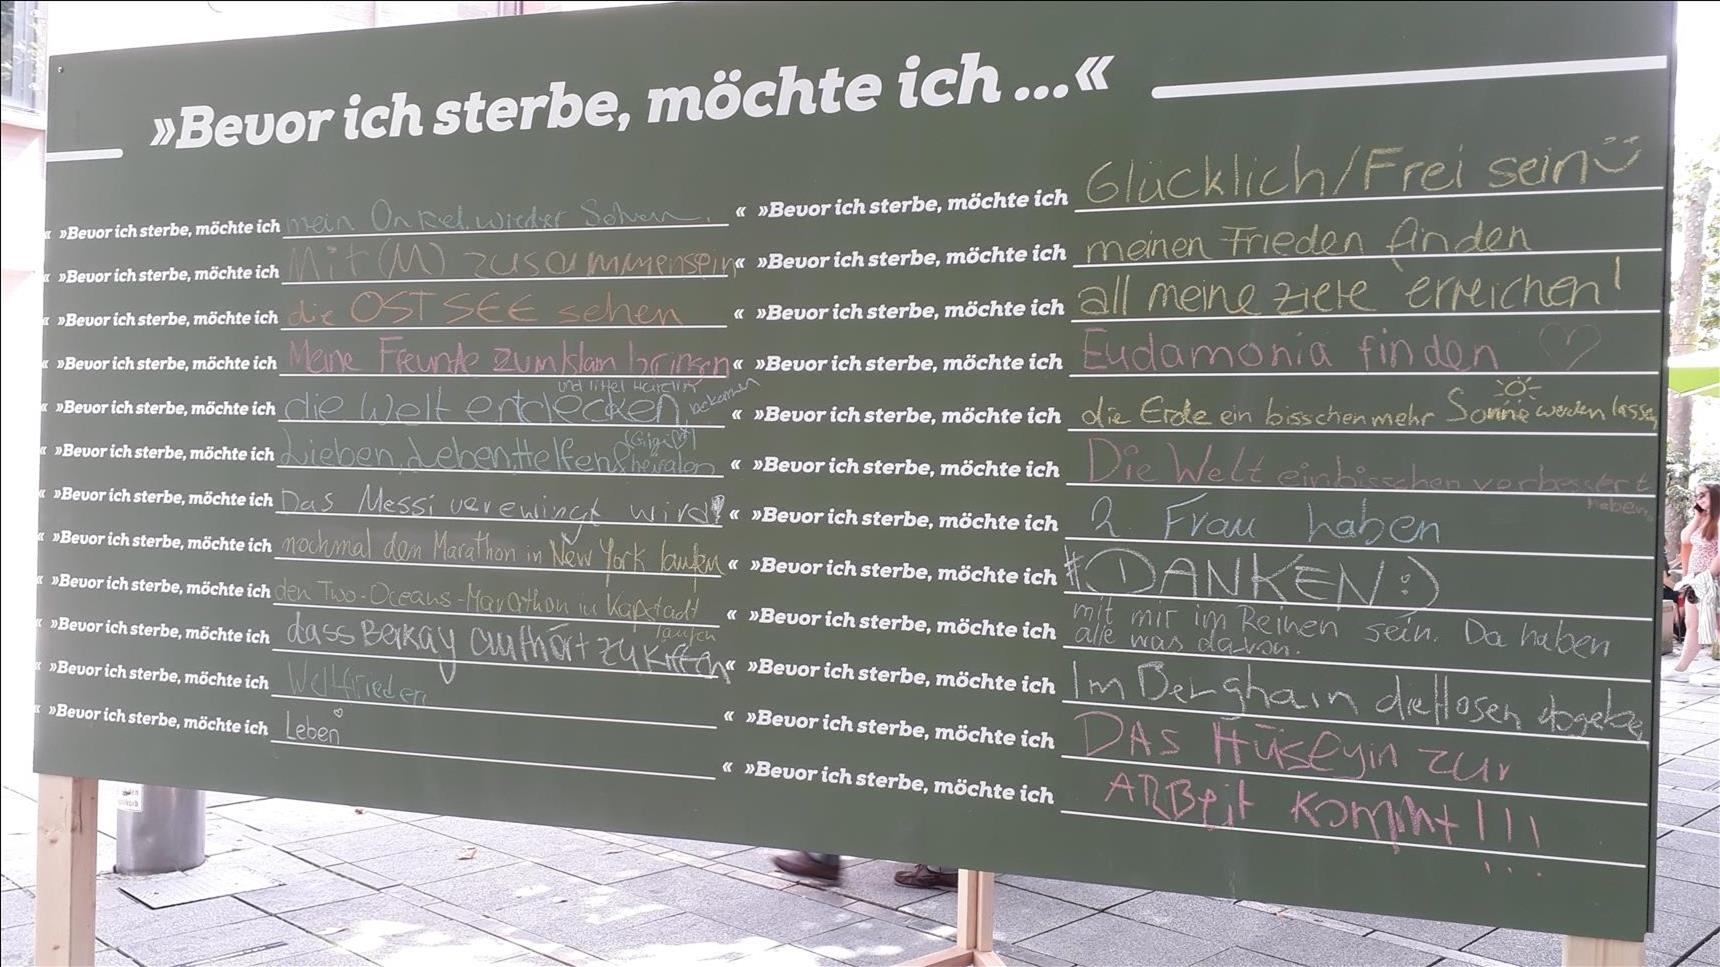 »Bevor ich sterbe, möchte ich ...«
« »Bevor ich sterbe, möchte ich mein Onkel wieder Sehen.
« »Bevor ich sterbe, möchte ich Mit (M) zusammensein
« »Bevor ich sterbe, möchte ich die OSTSEE sehen
« »Bevor ich sterbe, möchte ich Meine Freunde zum Islam bringen
« »Bevor ich sterbe, möchte ich die Welt entdecken
und bekommen
« »Bevor ich sterbe, möchte ich Lieben, Leben, Helfen & heiraten
(Gigi)
« »Bevor ich sterbe, möchte ich Das Messi verewingt wird!
« »Bevor ich sterbe, möchte ich nochmal den Marathon in New York laufen
« »Bevor ich sterbe, möchte ich den Two-Oceans-Marathon in Kapstadt
laufen
« »Bevor ich sterbe, möchte ich dass Berkay aufhört zu kiffen
« »Bevor ich sterbe, möchte ich Weltfrieden
« »Bevor ich sterbe, möchte ich Leben
« »Bevor ich sterbe, möchte ich Glücklich/Frei sein
« »Bevor ich sterbe, möchte ich meinen Frieden finden
« »Bevor ich sterbe, möchte ich all meine ziele erreichen!
« »Bevor ich sterbe, möchte ich Eudamonia finden
« »Bevor ich sterbe, möchte ich die Erde ein bisschen mehr Sonne werden lassen
« »Bevor ich sterbe, möchte ich Die Welt einbisschen verbessert
haben.
« »Bevor ich sterbe, möchte ich 2. Frau haben
« »Bevor ich sterbe, möchte ich #DANKEN :)
« »Bevor ich sterbe, möchte ich mit mir im Reinen sein. Da haben
alle was davon.
« »Bevor ich sterbe, möchte ich Im Berghain die Hosen
« »Bevor ich sterbe, möchte ich DAS HÜSEyin zur
« »Bevor ich sterbe, möchte ich ARBeit kommt!!!